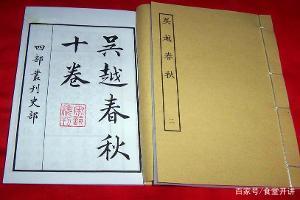 吳越春秋
十卷
四部叢刊史部
吳越春秋
二
百家号/食堂开讲